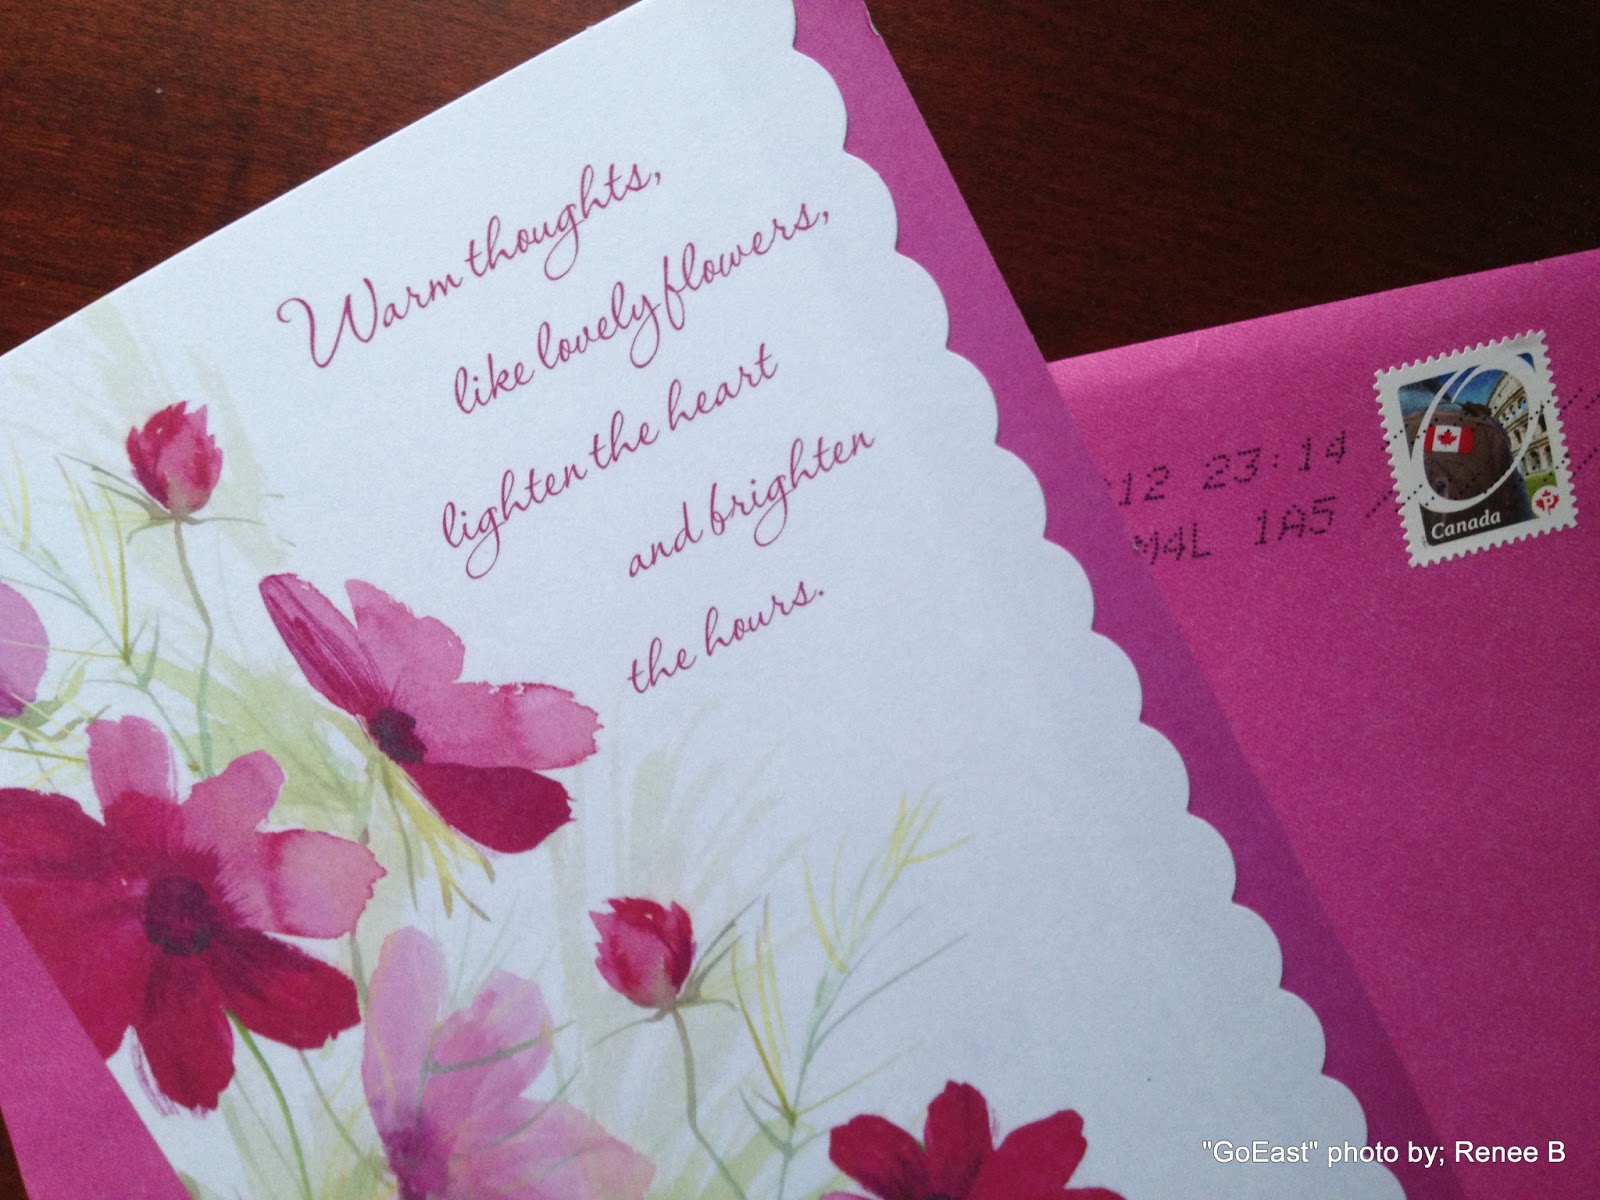 Warm thoughts,
like lovely flowers,
lighten the heart
and brighten
the hours.
12 23:14
M4L 1A5
Canada
P
"GoEast" photo by; Renee B